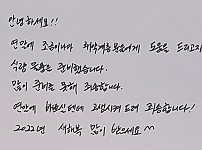 안녕하세요!!
연말에 조금이나마 취약계층분들에게 도움을 드리고자
식량 물품을 준비했습니다.
많이 준비를 못해 죄송합니다.
연말에 바쁘신텐데 고생시켜 드려 죄송합니다!
2022년 새해복 많이 받으세요^^